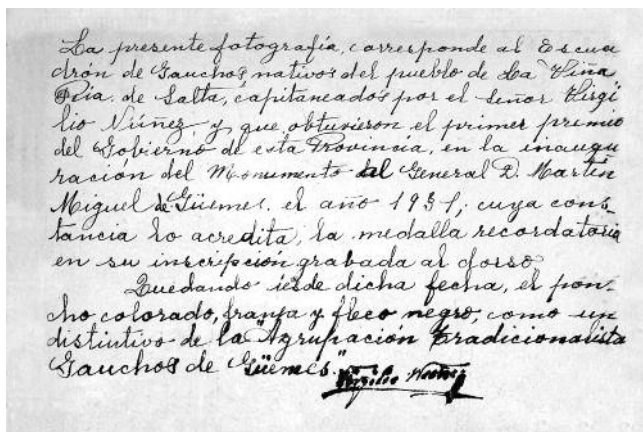 La presente fotografía, corresponde al Escua
drón de Gauchos nativos del pueblo de La Viña
Pcia. de Salta, capitaneados por el señor Virgi
lio Núñez y que obtuvieron el primer premio
del Gobierno de esta Provincia, en la inaugu
ración del Monumento al General D. Martín
Miguel de Güemes. el año 1931; cuya cons-
tancia lo acredita, la medalla recordatoria
en su inscripción grabada al dorso
Quedando desde dicha fecha, el pon-
cho colorado, franja y fleco negro, como un
distintivo de la "Agrupación Tradicionalista
Gauchos de Güemes."
Virgilio Núñez